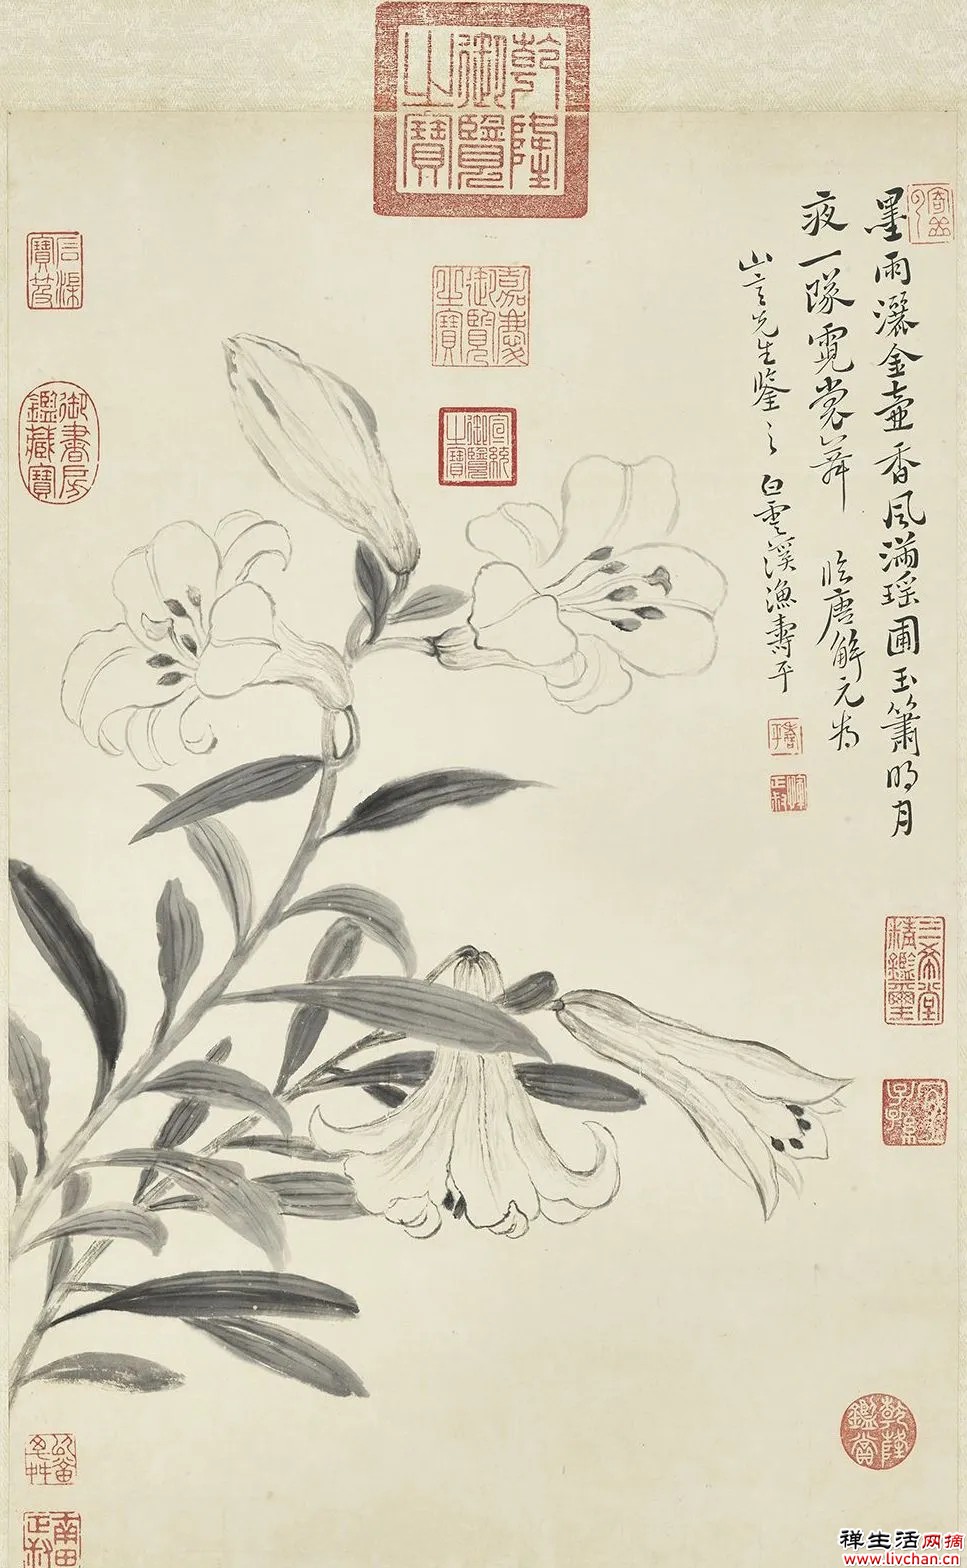 乾隆御覽之寶
墨雨灑金壺香風滿瑶圃玉簫明月
夜一隊霓裳舞 臨唐解元為
山言先生鑒之 白雲溪漁壽平
壽平
正叔
嘉慶御覽之寶
宣統御覽之寶
石渠寶笈
御書房鑑藏寶
三希堂精鑑璽
宜子孫
乾隆鑑賞
南田正叔
禅生活网摘
www.livchan.cn